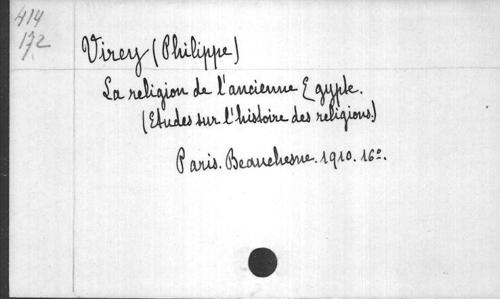 414
172
Virey (Philippe)
La religion de l'ancienne Egypte.
(Etudes sur l'histoire des religions.)
Paris. Beauchesne. 1910. 16º.